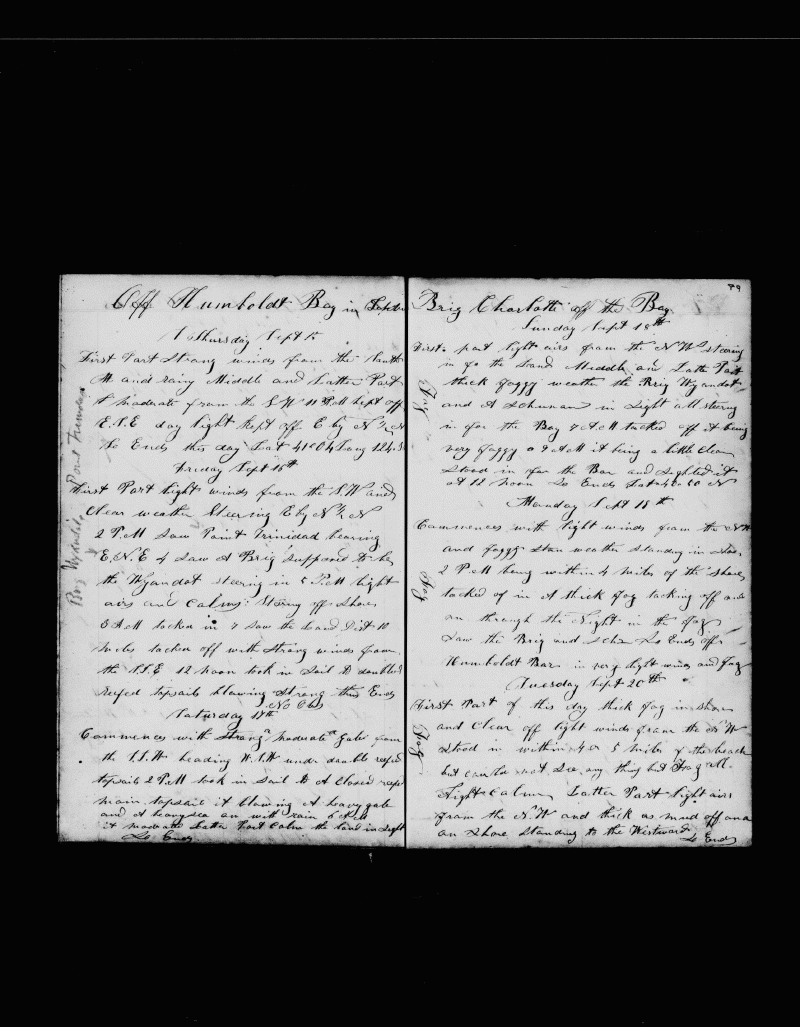 Off Humboldt Bay in Septem
Thursday Sept 15
First Part Strong winds from the South
W and rainy Middle and Latter Part
moderate from the S.W 11 P.M kept off
E.S.E day light kept off E by N ½ N
So Ends this day Lat 41°04 Long 124.
Friday Sept 16th
First Part light winds from the S.W and
Clear weather Steering E by N ½ N
2 P.M Saw Point Trinidad bearing
E.N.E 4 Saw A Brig Supposed to be
the Wyandot steering in 5 P.M light
airs and Calms Steering off Shore
6 A.M tacked in 7 Saw the Land Dist 10
miles tacked off with Strong winds from
the S.S.E 12 noon took in Sail to doubled
reefed topsails blowing Strong thus Ends
No Obs
Saturday 17th
Commences with Strong moderate gale from
the S.S.W heading W.S.W under double reefed
topsails 2 P.M took in Sail to A Closed reefed
main topsail it blowing A heavy gale
and A heavy sea on with rain 6 A.M
it moderate Latter Part Calm the land in Sight
So Ends
Point Trinidad
89
Brig Charlotte off the Bay
Sunday Sept 18th
First part light airs from the N.W steering
in for the Land Middle and Latter Part
thick foggy weather the Brig Wyandot
and A Schunar in Sight all steering
in for the Bay 7 A.M tacked off it being
very foggy 9 A.M it being a little Clear
Stood in for the Bar and Sighted it
at 12 noon So Ends Lat N
Fog
Monday Sept 19th
Commences with light winds from the N.W
and foggy weather standing in Shore
2 P.M being within 4 miles of the Shore
tacked of in A thick fog tacking off and
on through the Night in the fog
Saw the Brig and Schr So Ends off
Humboldt Bar in very light winds and fog
Fog
Tuesday Sept 20th
First Part of this day thick fog in shore
and Clear off light winds from the N.W
Stood in within 4 or 5 miles of the beach
but could not See any thing but Fog all
Night Calm Latter Part light airs
from the N.W and thick as mud off and
on Shore Standing to the Westward
So Ends
Fog